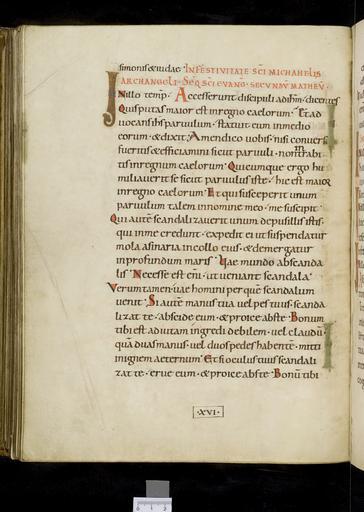 simonis & iudae. IN FESTIVITATE SCI MICHAHELIS
ARCHANGELI. SEQ SCI EVANG. SECVNDV MATHEV.
In illo temp. Accesserunt discipuli ad ihm. dicentes
Quis putas maior est in regno caelorum. Et ad
uocans ihs paruulum. statuit eum in medio
eorum. & dixit. Amen dico uobis. nisi conuersi
fueritis & efficiamini sicut paruuli. non intrabi
tis in regnum caelorum. Quicumque ergo hu
miliauerit se sicut paruulus iste. hic est maior
in regno caelorum. Et qui susceperit unum
paruulum talem in nomine meo. me suscipit.
Qui autē scandalizauerit unum de pusillis istis.
qui in me credunt. expedit ei ut suspendatur
mola asinaria in collo eius. & demergatur
in profundum maris. Vae mundo ab scanda
lis. Necesse est eni. ut ueniant scandala.
Verumtamen. uae homini per quē scandalum
uenit. Si autē manus tua uel pes tuus. scanda
lizat te. abscide eum. & proice abs te. Bonum
tibi est ad uitam ingredi debilem. uel claudū.
quā duas manus. uel duos pedes habentē. mitti
in ignem aeternum. Et si oculus tuus scandali
zat te. erue eum. & proice abs te. Bonū tibi
.XVI.